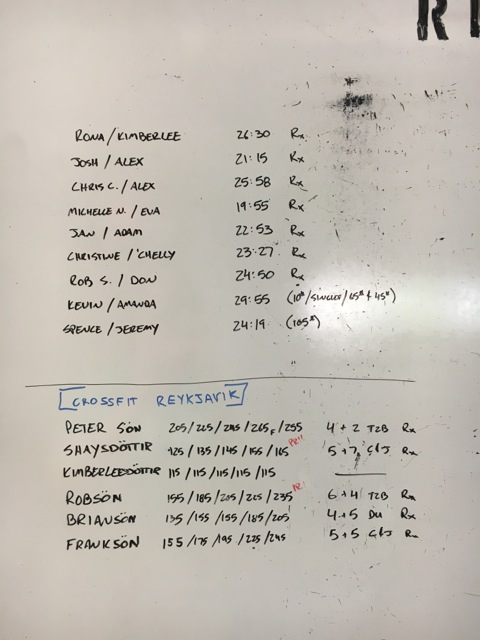 RONA/KIMBERLEE 26:30 Rx
JOSH / ALEX 21:15 Rx
CHRIS C. / ALEX 25:58 Rx
MICHELLE N. / EVA 19:55 Rx
JAN / ADAM 22:53 Rx
CHRISTINE / CHELLY 23:27 Rx
ROB S. / DON 24:50 Rx
KEVIN / AMANDA 29:55 (10#/SINGLES/65# & 45#)
SPENCE / JEREMY 24:19 (105#)
CROSSFIT REYKJAVIK
PETER SÖN 205/225/245/265F/255 4+2 T2B Rx
SHAYSDÖTTIR 125/135/145/155/165 PR!! 5+7 C&J Rx
KIMBERLEEDÖTTIR 115/115/115/115/115
ROBSÖN 155/185/205/225/235 PR! 6+4 T2B Rx
BRIANSÖN 135/155/155/185/205 4+5 DU Rx
FRANKSÖN 155/175/195/225/245 5+5 C&J Rx